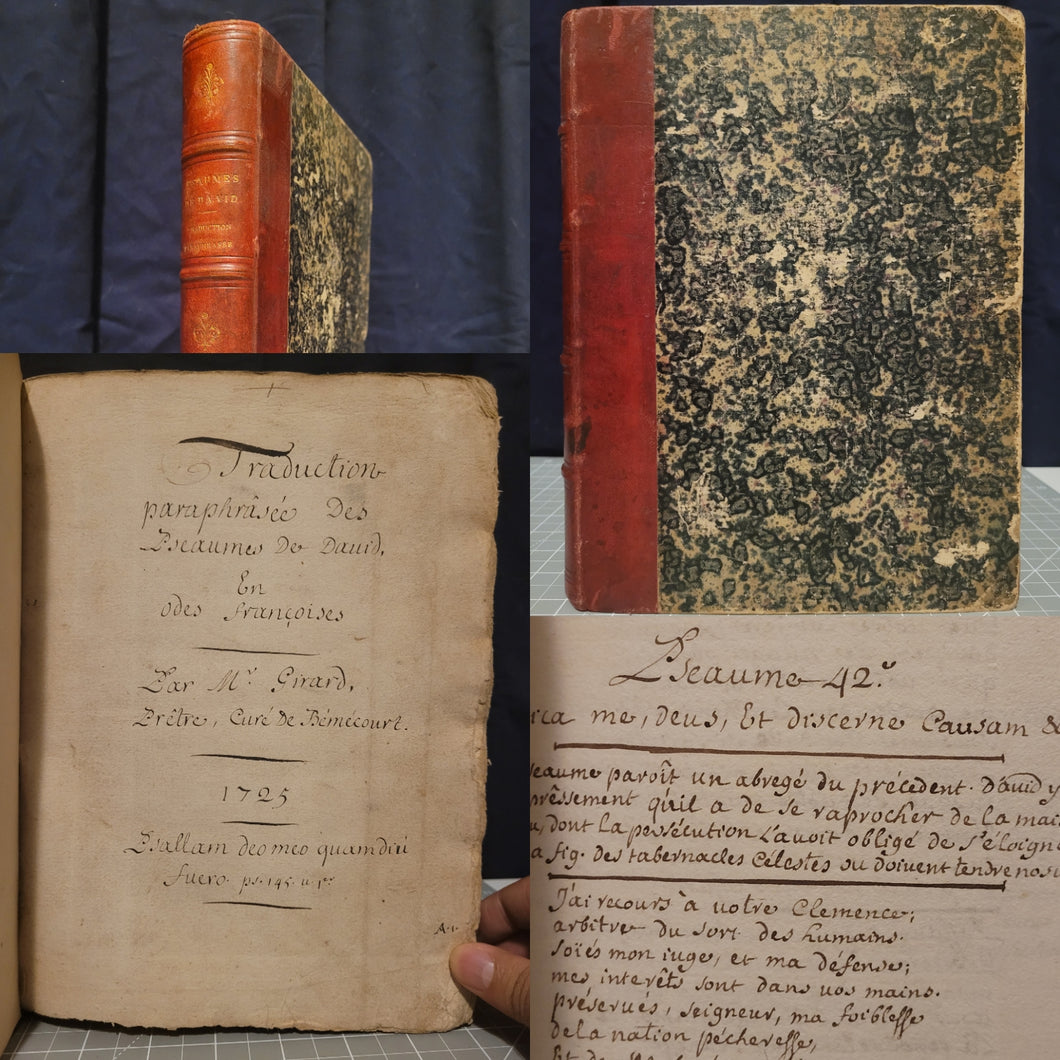 PSAUMES
DE DAVID
TRADUCTION
Traduction
paraphrâsée Des
Pseaumes De David,
En
odes françoises
Par Mr. Girard,
Prêtre, Curé De Bémécourt.
1725
Psallam deo meo quamdiu
fuero. ps. 145. u. 1er
A.1.
Pseaume 42.e
ica me, Deus, Et Discerne Causam &
eaume paroît un abregé du précedent. David y
pressement qu'il a de se raprocher de la mai
u, dont la persécution l'auoit obligé de s'éloign
a fig. des tabernacles Célestes ou doiuent tendre nos
J'ai recours à uotre Clemence;
arbitre du sort des humains.
soïés mon iuge, et ma défense;
mes interêts sont dans uos mains.
préserués, seigneur, ma foiblesse
de la nation pécheresse,